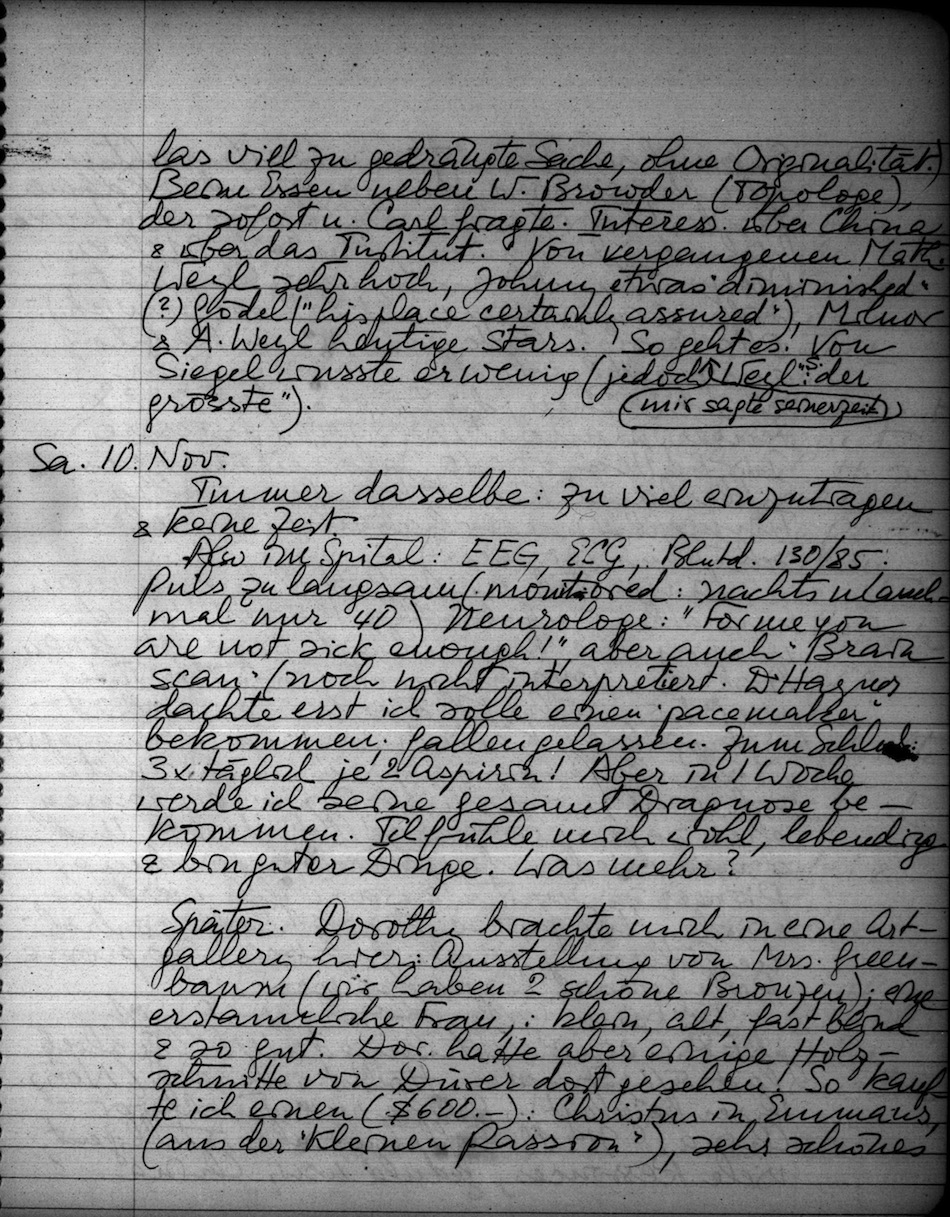 las viel zu gedrängte Sache, ohne Originalität.)
Beim Essen neben W. Browder (Topologe),
der sofort n. Carl fragte. Interess. über China
& über das Institut. Von vergangenen Math.
Weyl sehr hoch, Johnny etwas "diminished"
(?) Gödel ("his place certainly assured"), Milnor
& A. Weyl heutige Stars. So geht es. Von
Siegel wusste er wenig (jedoch Weyl's: "der
grösste").
(mir sagte seinerzeit)
Sa. 10. Nov.
Immer dasselbe: zu viel einzutragen
& keine Zeit.
Also im Spital: EEG, ECG, Blutd. 130/85.
Puls zu langsam (monitored: nachts manch-
mal nur 40) Neurologe: "For me you
are not sick enough!", aber auch "Brain
scan" (noch nicht interpretiert. Dr Hagner
dachte erst ich solle einen "pacemaker"
bekommen; fallen gelassen. Zum Schluss:
3 x täglich je 2 Aspirin! Aber in 1 Woche
werde ich seine gesamt Diagnose be-
kommen. Ich fühle mich wohl, lebendig
& bin guter Dinge. Was mehr?
Später. Dorothy brachte mich in eine Art-
gallery hier: Ausstellung von Mrs. Green-
baum (wir haben 2 schöne Bronzen); eine
erstaunliche Frau,: klein, alt, fast blind
& so gut. Dor. hatte aber einige Holz-
schnitte von Dürer dort gesehen. So kauf-
te ich einen ($600.-): Christus in Emmaus,
(aus der "Kleinen Passion"), sehr schönes